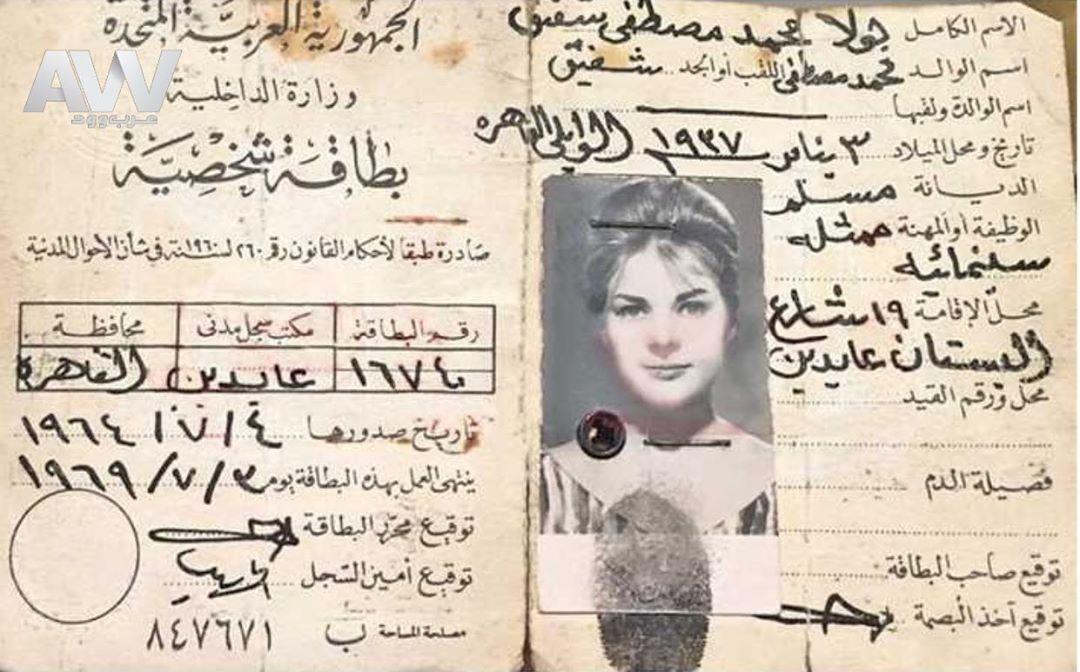 الجمهورية العربية المتحدة
وزارة الداخلية
بطاقة شخصية
صادرة طبقا لأحكام القانون رقم ٢٦٠ لسنة ١٩٦٠ في شأن الأحوال المدنية
رقم البطاقة مكتب سجل مدنى محافظة
١٦٧٤٠ عابدين القاهرة
تاريخ صدورها ٤/٧/١٩٦٤
ينتهى العمل بهذه البطاقة يوم ٣/٧/١٩٦٩
توقيع محرر البطاقة
توقيع أمين السجل
مصلحة المساحة ب ٨٤٧٦٧١
الاسم الكامل بولا محمد مصطفى شفيق
اسم الوالد محمد مصطفى اللقب أو الجد شفيق
اسم الوالدة ولقبها
تاريخ ومحل الميلاد ٣ يناير ١٩٣٧ الوايلى القاهرة
الديانة مسلمه
الوظيفة أو المهنة ممثله
سنمائيه
محل الإقامة ١٩ شارع
البستان عابدين
محل ورقم القيد
فصيلة الدم
توقيع صاحب البطاقة
توقيع آخذ البصمة
AW
عرب وود